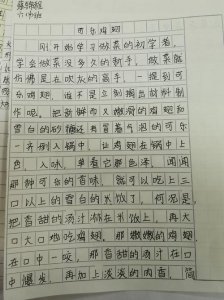 薛锦程
六四班
可乐鸡翅
刚开始学习做菜的初学者,
学会做菜没多久的新手,做菜就
仿佛是在吹灰的高手,一提到可
乐鸡翅,谁不是立刻掏出材料制
作呢。把新鲜而又嫩滑的鸡翅和
雪白的砂糖还有冒着气泡的可乐
一齐倒入锅中,让鸡翅在锅中上
色、入味,单看它颜色泽,闻闻
那种可乐的香味,就可以吃上三
口以上的雪白的米饭了。何况是
把香甜的汤汁淋在米饭上,再大
口大口地吃鸡翅。那嫩嫩的鸡翅
在口中一咬,那香甜的汤汁在口
中爆发,再加上淡淡的肉香,简